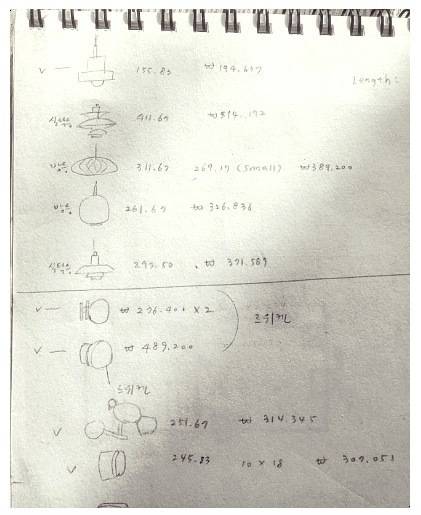 v — 155.83 ₩194.617
Length:
식탁용 411.67 ₩514.192
311.67 269.17 (small) ₩389.200
261.67 ₩326.836
식탁용 297.50 ₩371.569
v — ₩276.401 x 2
v — ₩489.200
v 251.67 ₩314.345
v 245.83 10 x 18 ₩307.051